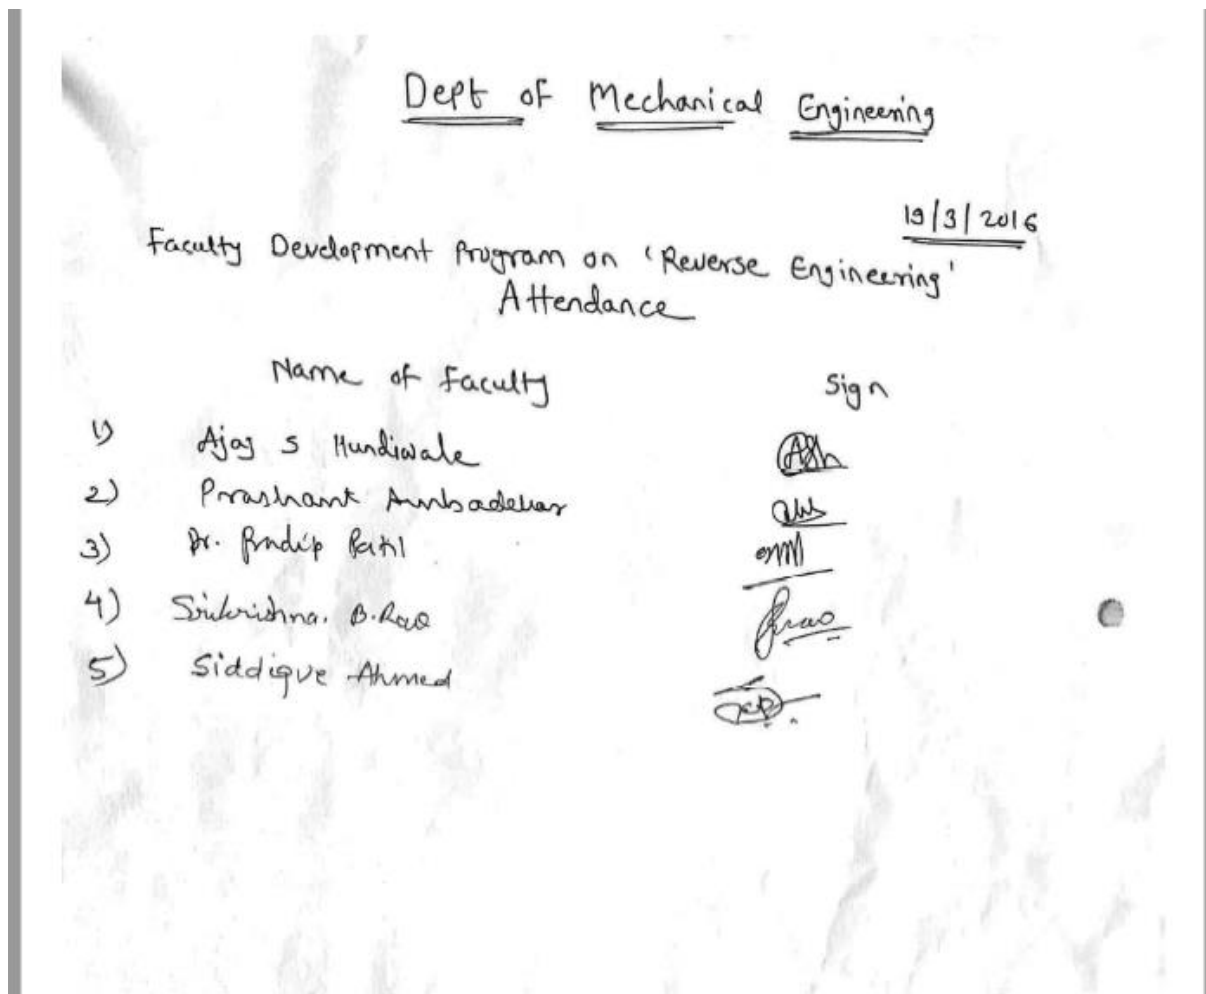 Dept of Mechanical Engineering
19/3/2016
Faculty Development Program on 'Reverse Engineering'
Attendance
Name of Faculty Sign
1) Ajay S Hundiwale
2) Prashant Ambadekar
3) Dr. Pradip Patil
4) Srikrishna. B. Rao
5) Siddique Ahmed